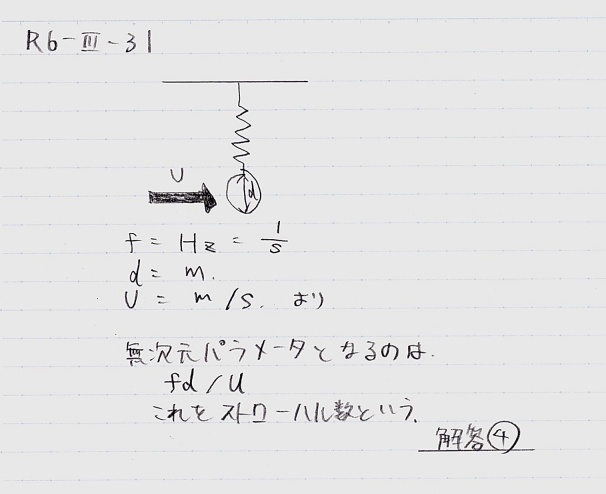 R6-Ⅲ-31
U
d
f = Hz = 1/s
d = m.
U = m/s. より
無次元パラメータとなるのは.
fd/U
これをストローハル数という.
解答④